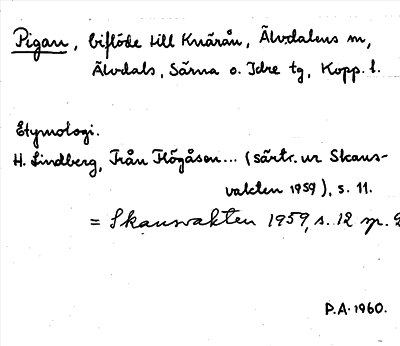 Pigan, biflöde till Knärån, Älvdalens m,
Älvdals, Särna o. Idre tg, Kopp. l.
Etymologi.
H. Lindberg, Från Högåsen... (särtr. ur Skans-
vakten 1959), s. 11.
= Skansvakten 1959, s. 12 sp.
P.A. 1960.